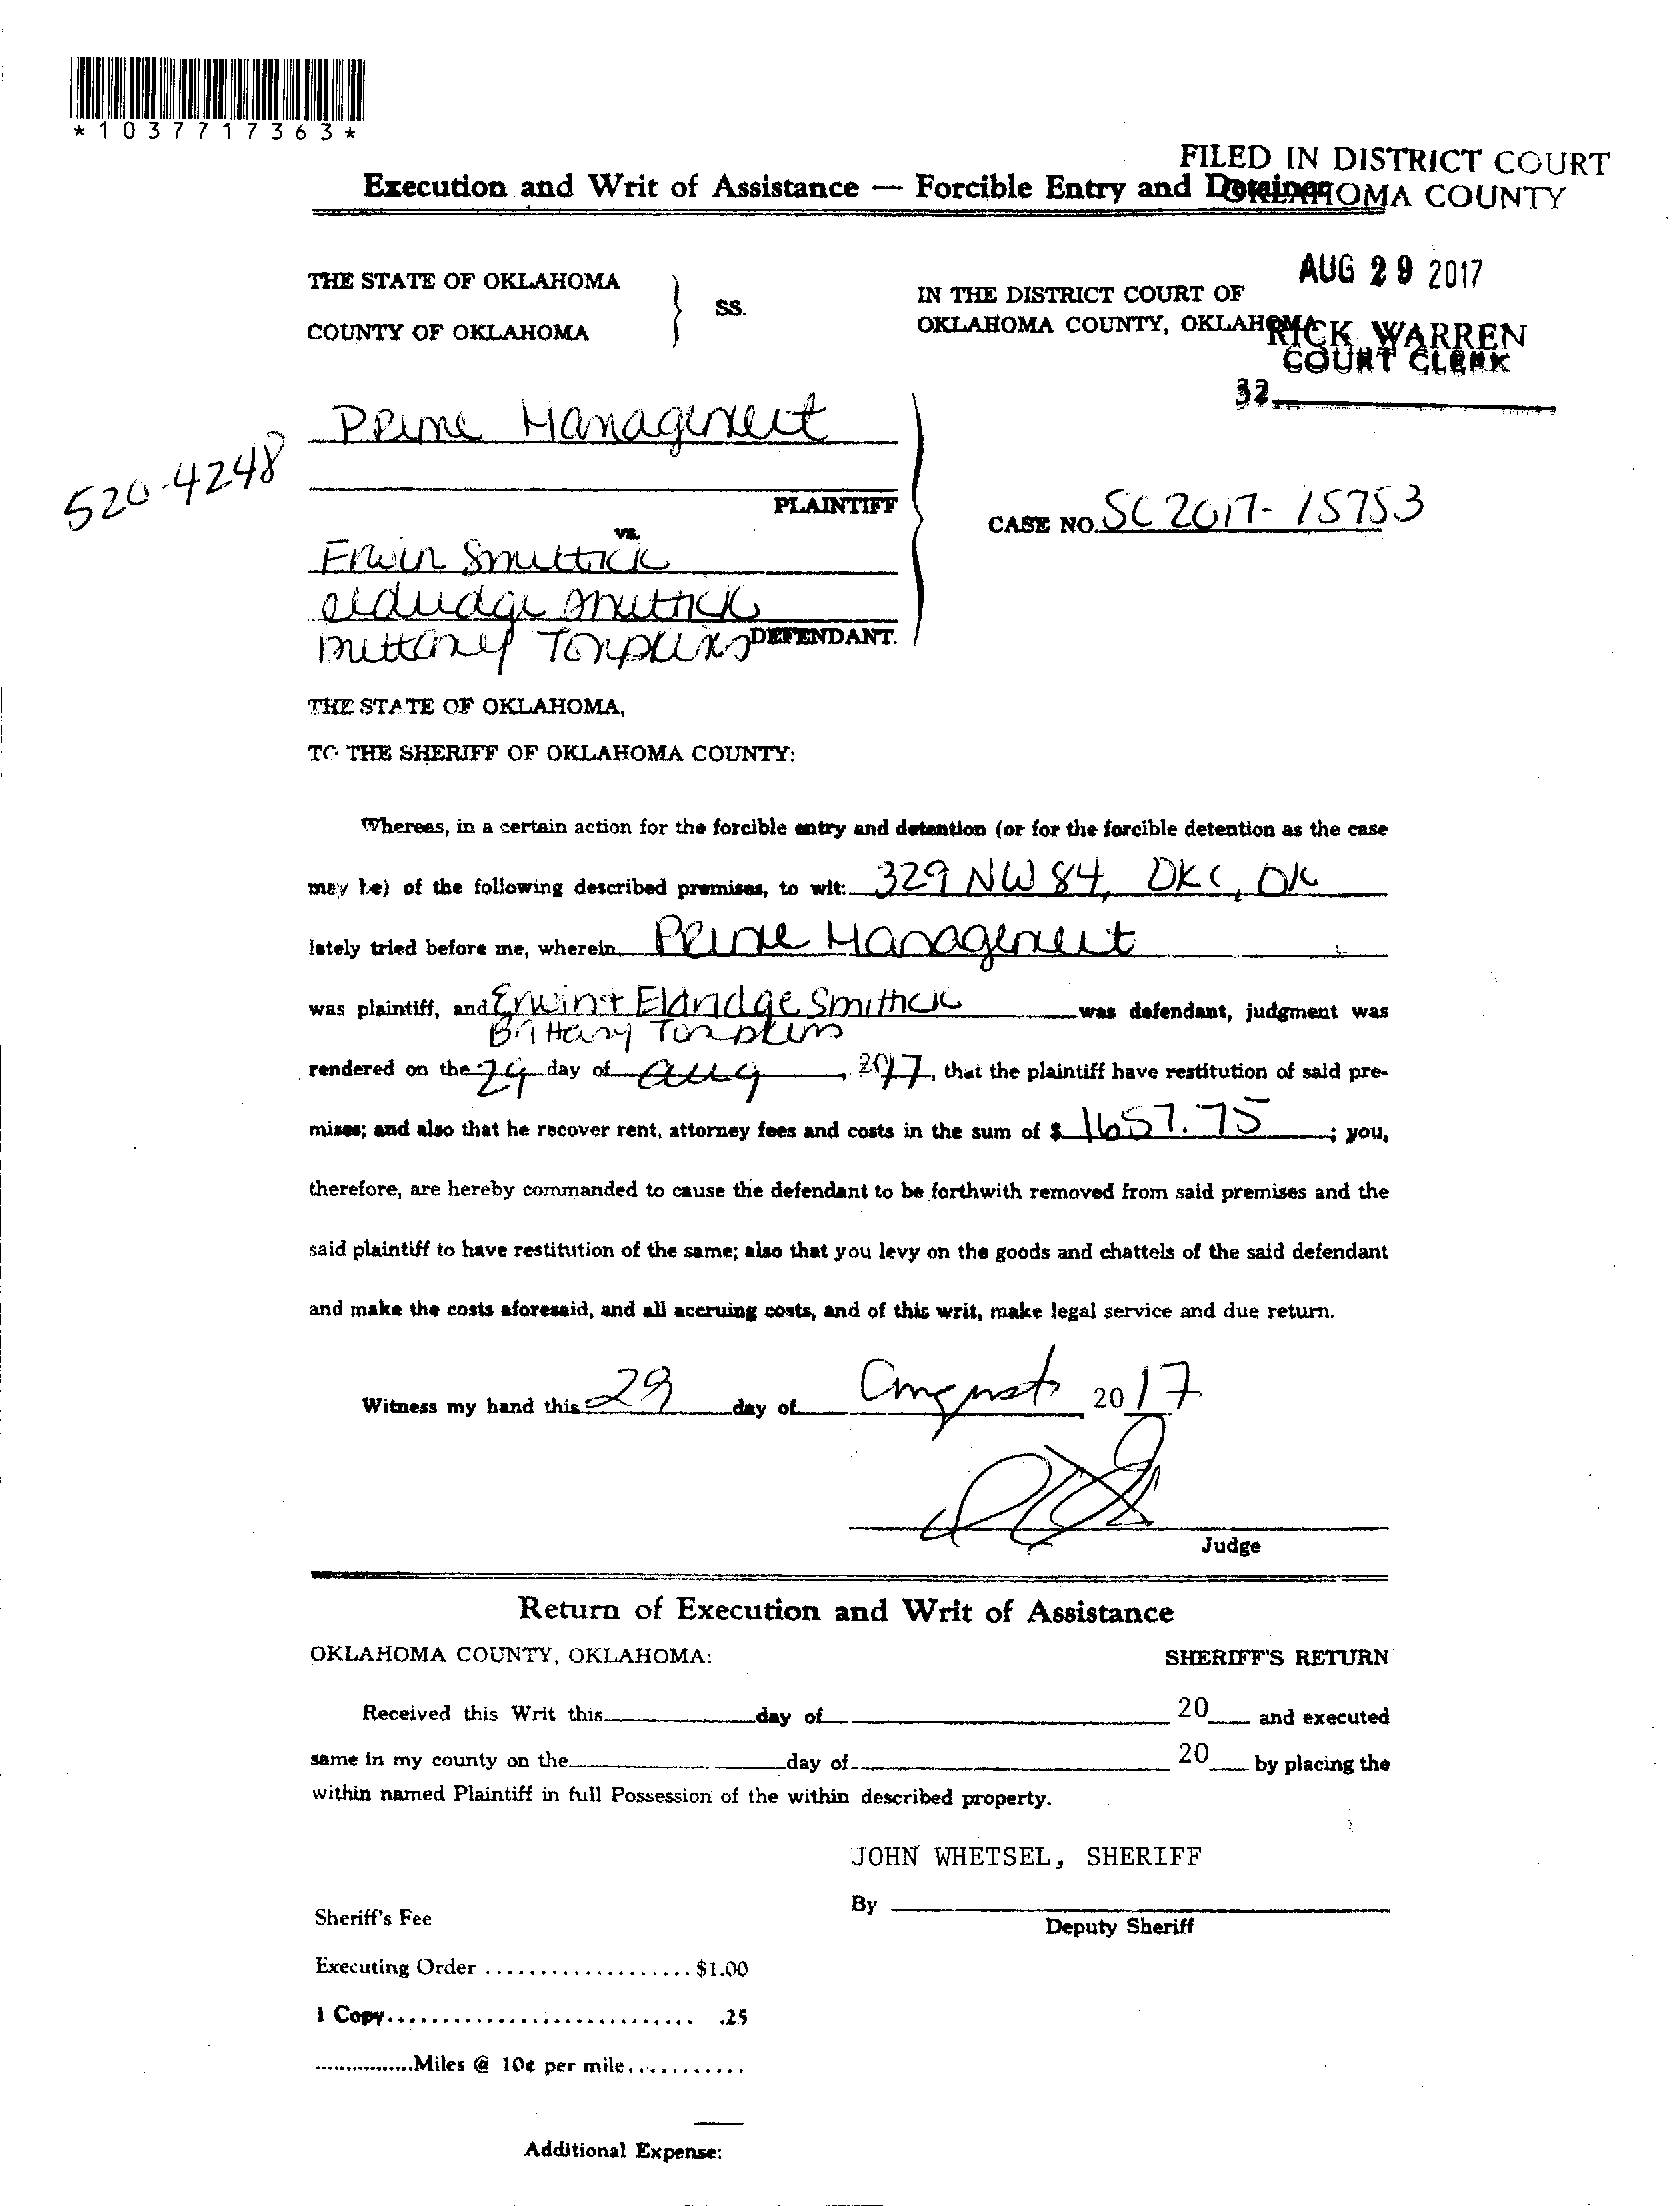 *1037717363*
FILED IN DISTRICT COURT
Execution and Writ of Assistance — Forcible Entry and Detainer
OKLAHOMA COUNTY
AUG 29 2017
THE STATE OF OKLAHOMA
SS.
COUNTY OF OKLAHOMA
IN THE DISTRICT COURT OF
OKLAHOMA COUNTY, OKLAHOMA
RICK WARREN
COURT CLERK
32
Prime Management
520-4248
PLAINTIFF
vs.
CASE NO. SC 2017-15753
Erwin Smittick
eldridge Smittick
Brittaney Tompkins DEFENDANT.
THE STATE OF OKLAHOMA,
TO THE SHERIFF OF OKLAHOMA COUNTY:
Whereas, in a certain action for the forcible entry and detention (or for the forcible detention as the case
may be) of the following described premises, to wit: 329 NW 84, OKC, OK
lately tried before me, wherein Prime Management
was plaintiff, and Erwin + Eldridge Smithick was defendant, judgment was
Brittany Tompkins
rendered on the 29 day of Aug, 2017, that the plaintiff have restitution of said pre-
mises; and also that he recover rent, attorney fees and costs in the sum of $ 1657.75; you,
therefore, are hereby commanded to cause the defendant to be forthwith removed from said premises and the
said plaintiff to have restitution of the same; also that you levy on the goods and chattels of the said defendant
and make the costs aforesaid, and all accruing costs, and of this writ, make legal service and due return.
Witness my hand this 29 day of August 2017
Judge
Return of Execution and Writ of Assistance
OKLAHOMA COUNTY, OKLAHOMA:
SHERIFF'S RETURN
Received this Writ this day of 20 and executed
same in my county on the day of 20 by placing the
within named Plaintiff in full Possession of the within described property.
JOHN WHETSEL, SHERIFF
By
Deputy Sheriff
Sheriff's Fee
Executing Order ................... $1.00
1 Copy............................ .25
................Miles @ 10¢ per mile...........
Additional Expense: